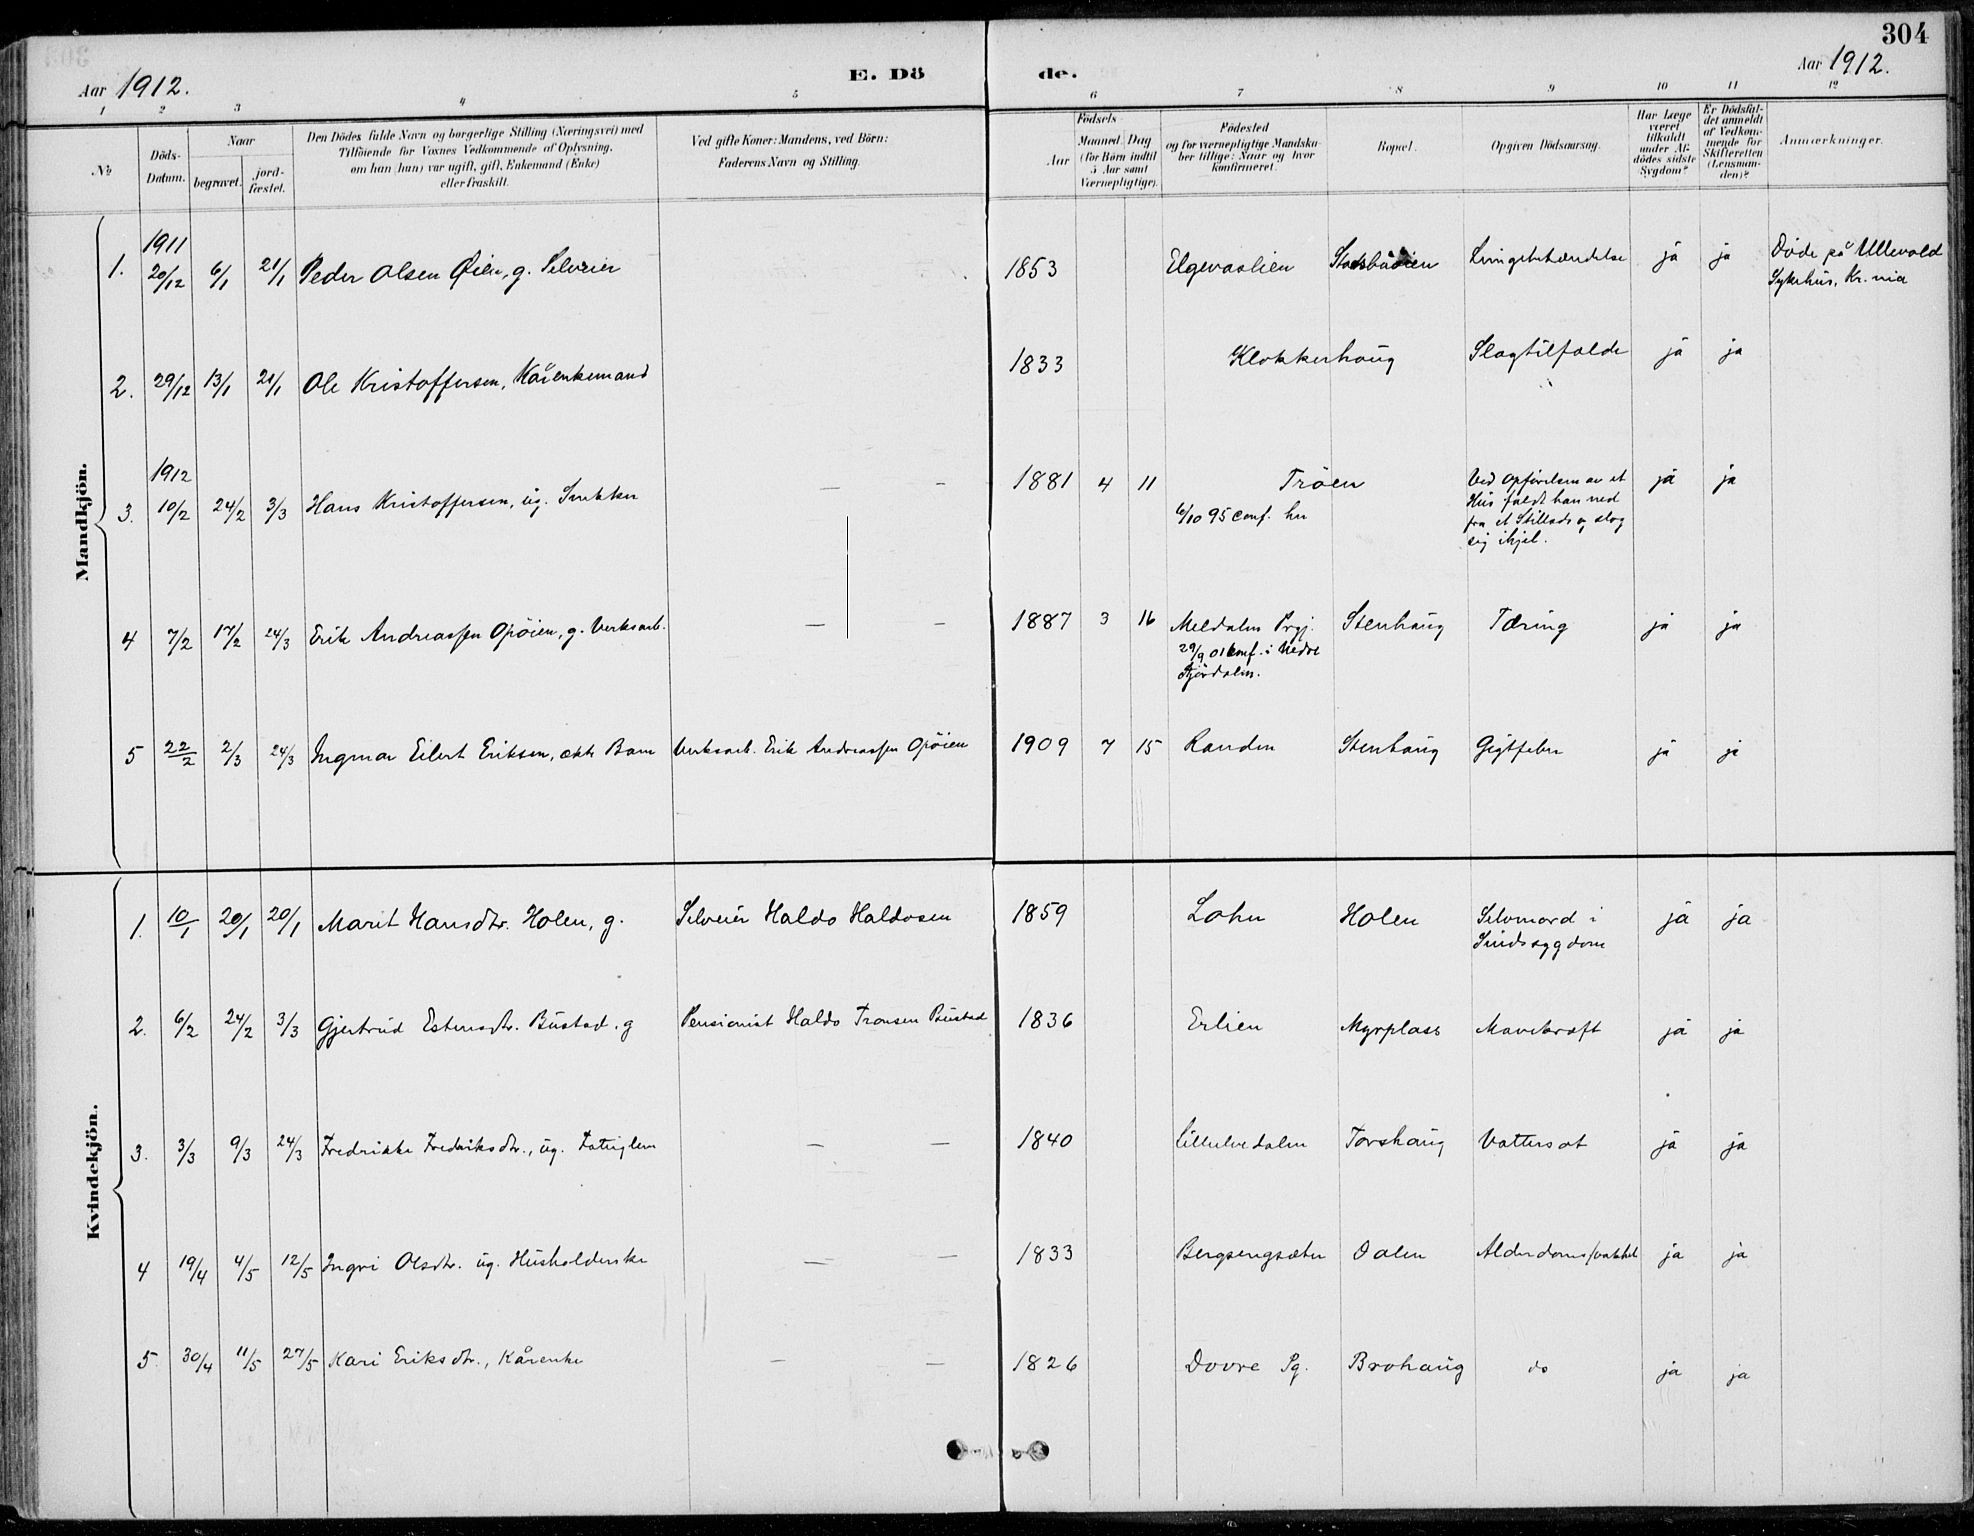 304
Aar 1912.
E. Dö
de.
Aar 1912.
1 2 3 4 5 6 7 8 9 10 11 12
№
Döds-
Datum.
Naar
begravet.
jord-
fæstet.
Den Dödes fulde Navn og borgerlige Stilling (Næringsvei) med
Tilföiende for Voxnes Vedkommende af Oplysning,
om han (hun) var ugift, gift, Enkemand (Enke)
eller fraskilt.
Ved gifte Koner: Mandens, ved Börn:
Faderens Navn og Stilling.
Födsels
Aar
Maaned. Dag
(for Börn indtil
5 Aar samt
Værnepligtige).
Födested
og for værnepligtige Mandska-
ber tillige: Naar og hvor
konfirmeret.
Bopæl.
Opgiven Dödsaarsag.
Har Læge
været
tilkaldt
under Af-
dödes sidste
Sygdom?
Er Dödsfal-
det anmeldt
af Vedkom-
mende for
Skifteretten
(Lensman-
den)?
Anmærkninger.
Mandkjön.
1911
1. 20/12 6/1 21/1 Peder Olsen Øien, g. Selveier 1853 Elgevaslien Lungebetændelse ja ja Døde på Ullevold
Sykehus, Kr.nia
2. 29/12 13/1 21/1 Ole Kristoffersen, Kårenkemand 1833 Klokkerhaug Slagtilfælde ja ja
1912
3. 10/2 24/2 3/3 Hans Kristoffersen, ug. Snekker — — 1881 4 11 Trøen Ved Opførelsen av et
6/10 95 conf. her Hus faldt han ned
fra et Stillads og slog
sig ihjel. ja ja
4 7/2 17/2 24/3 Erik Andreassen Opøien, g. Verksarb. — — 1887 3 16 Meldalen Prgj. Stenhaug Tæring ja ja
29/9 01 Conf. i Nedre
Stjørdalen.
5 22/2 2/3 24/3 Ingmar Eilert Eriksen, ækte Barn Verksarb. Erik Andreassen Opøien 1909 7 15 Randen Stenhaug Gigtfeber ja ja
Kvindekjön.
1. 10/1 20/1 20/1 Marit Hansdtr. Holen, g. Selveier Haldo Haldosen 1859 Lohn Holen Selvmord i
Sindssygdom ja ja
2. 6/2 24/2 3/3 Gjertrud Estensdtr. Bustad, g Pensionist Haldo Tronsen Bustad 1836 Erlien Myrplass Mavekræft ja ja
3. 3/3 9/3 24/3 Fredrikke Fredriksdtr., ug. Fattiglem — — 1840 Lilleelvedalen Torshaug Vattersot ja ja
4 19/4 4/5 12/5 Ingri Olsdtr. ug. Husholderske — — 1833 Bergsengsæter Dalen ja ja
5. 30/4 11/5 27/5 Kari Eriksdtr., Kårenke — — 1826 Dovre Pg. Brohaug do ja ja